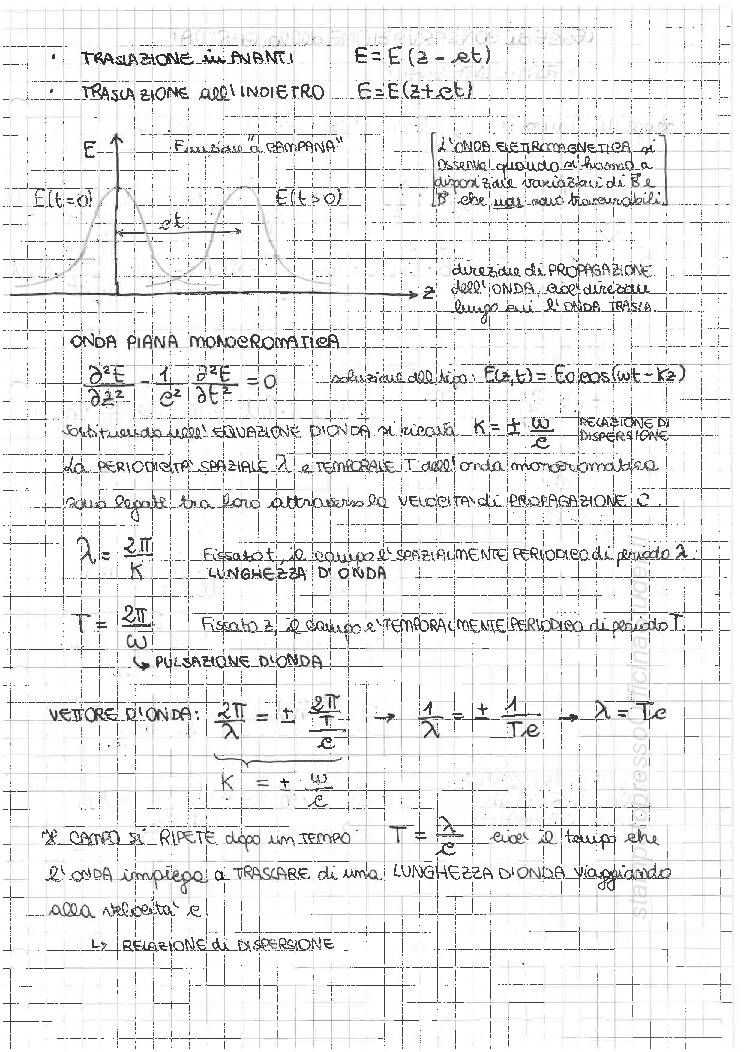 • TRASLAZIONE in AVANTI E = E (z - ct)
• TRASLAZIONE all'INDIETRO E = E(z+ct)
E
Funzione "a CAMPANA"
E(t=0)
E(t>0)
ct
z
[L'ONDA ELETTROMAGNETICA si
osserva quando si hanno a
disposizione variazioni di E e
B che non sono trascurabili]
direzione di PROPAGAZIONE
dell'ONDA, cioè direzione
lungo cui l'ONDA TRASLA.
ONDA PIANA MONOCROMATICA
∂²E/∂z² - 1/c² ∂²E/∂t² = 0 soluzione del tipo: E(z,t) = E₀ cos(ωt - Kz)
sostituendo nell'EQUAZIONE D'ONDA si ricava K = ± ω/c RELAZIONE DI
DISPERSIONE
La PERIODICITA' SPAZIALE λ e TEMPORALE T dell'onda monocromatica
sono legate tra loro attraverso la VELOCITA' di PROPAGAZIONE C.
λ = 2π/K Fissato t, il campo e' SPAZIALMENTE PERIODICO di periodo λ.
LUNGHEZZA D'ONDA
T = 2π/ω Fissato z, il campo e' TEMPORALMENTE PERIODICO di periodo T.
↳ PULSAZIONE D'ONDA
VETTORE D'ONDA: 2π/λ = ± 2π/T/c → 1/λ = ± 1/Tc → λ = Tc
K = ± ω/c
Il CAMPO SI RIPETE dopo un TEMPO T = λ/c cioe' il tempo che
l'ONDA impiega a TRASLARE di una LUNGHEZZA D'ONDA viaggiando
alla velocita' c
↳ RELAZIONE di DISPERSIONE